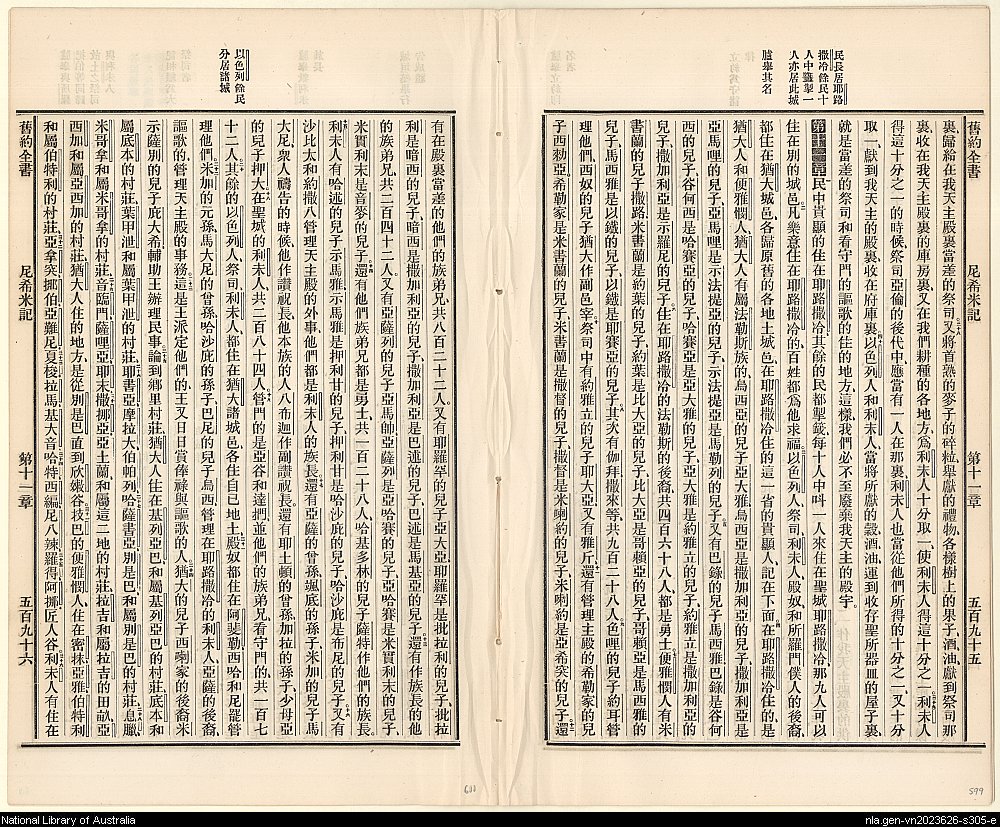 民長居耶路
撒冷餘民十
人中籤舉一
人亦居此城
臚舉其名
舊約全書 尼希米記 第十一章 五百九十五
裏歸給在我天主殿裏當差的祭司又將首熟的麥子的碎粒舉獻的禮物各樣樹上的果子酒油獻到祭司那
裏收在我天主殿裏的庫房裏又在我們耕種的各地方爲利未人十分取一使利未人得這十分之一利未人
得這十分之一的時候祭司亞倫的後代中應當有一人在那裏利未人也當從他們所得的十分之一又十分
取一獻到我天主的殿裏收在府庫裏以色列人和利未人當將所獻的穀酒油運到收存聖所器皿的屋子裏
就是當差的祭司和看守門的謳歌的住的地方這樣我們必不至廢棄我天主的殿宇
第十一章民中貴顯的住在耶路撒冷其餘的民都掣籤每十人中呌一人來住在聖城耶路撒冷那九人可以
住在別的城邑凡樂意住在耶路撒冷的百姓都爲他求福以色列人祭司利未人殿奴和所羅門僕人的後裔
都住在猶大城邑各歸原舊的各地土城邑在耶路撒冷住的這一省的貴顯人記在下面在耶路撒冷住的是
猶大人和便雅憫人猶大人有屬法勒斯族的烏西亞的兒子亞大雅烏西亞是撒加利亞的兒子撒加利亞是
亞馬哩的兒子亞馬哩是示法提亞的兒子示法提亞是馬勒列的兒子又有巴錄的兒子馬西雅巴錄是谷何
西的兒子谷何西是哈賽亞的兒子哈賽亞是亞大雅的兒子亞大雅是約雅立的兒子約雅立是撒加利亞的
兒子撒加利亞是示羅尼的兒子住在耶路撒冷的法勒斯的後裔共四百六十八人都是勇士便雅憫人有米
書蘭的兒子撒路米書蘭是約葉的兒子約葉是比大亞的兒子比大亞是哥賴亞的兒子哥賴亞是馬西雅的
兒子馬西雅是以鐵的兒子以鐵是耶賽亞的兒子其次有伽拜撒來等共九百二十八人色哩的兒子約珥管
理他們西奴的兒子猶大作副邑宰祭司中有約雅立的兒子耶大亞又有雅斤還有管理主殿的希勒家的兒
子西勑亞希勒家是米書蘭的兒子米書蘭是撒督的兒子撒督是米喇約的兒子米喇約是亞希突的兒子還
以色列餘民
分居諸城
有在殿裏當差的他們的族弟兄共八百二十二人又有耶羅罕的兒子亞大亞耶羅罕是批拉利的兒子批拉
利是暗西的兒子暗西是撒加利亞的兒子撒加利亞是巴述的兒子巴述是馬基亞的兒子還有作族長的他
的族弟兄共二百四十二人又有亞薩列的兒子亞馬帥亞薩列是亞哈賽的兒子亞哈賽是米實利末的兒子
米實利末是音麥的兒子還有他們族弟兄都是勇士共一百二十八人哈基多林的兒子薩特作他們的族長
利未人有哈述的兒子示馬雅示馬雅是押利甘的兒子押利甘是哈沙庇的兒子哈沙庇是布尼的兒子又有
沙比太和約撒八管理天主殿的外事他們都是利未人的族長還有亞薩的曾孫颯底的孫子米加的兒子馬
大尼衆人禱告的時候他作讚祝長他本族的人八布迦作副讚祝長還有耶土頓的曾孫加拉的孫子少母亞
的兒子押大在聖城的利未人共二百八十四人管門的是亞谷和達們並他們的族弟兄看守門的共一百七
十二人其餘的以色列人祭司利未人都住在猶大諸城邑各住自己地土殿奴都住在阿斐勒西哈和尼罷管
理他們米加的元孫馬大尼的曾孫哈沙庇的孫子巴尼的兒子烏西管理在耶路撒冷的利未人亞薩的後裔
謳歌的管理天主殿的事務這是王派定他們的王又日日賞俸祿與謳歌的人猶大的兒子西喇家的後裔米
示薩別的兒子庇大希輔助王辦理民事論到鄉里村莊猶大人住在基列亞巴和屬基列亞巴的村莊底本和
屬底本的村莊葉甲泄和屬葉甲泄的村莊耶書亞摩拉大伯帕列哈薩書亞別是巴和屬別是巴的村莊息臘
米哥拿和屬米哥拿的村莊音臨門薩哩亞耶末撒挪亞亞土蘭和屬這二地的村莊拉吉和屬拉吉的田畝亞
西加和屬亞西加的村莊猶大人住的地方是從別是巴直到欣嫩谷技巴的便雅憫人住在密抹亞雅伯特利
和屬伯特利的村莊亞拿突挪伯亞難尼夏梭拉馬基大音哈特西編尼八辣羅得阿挪匠人谷利未人有住在
舊約全書 尼希米記 第十一章 五百九十六
600
599
National Library of Australia
nla.gen-vn2023626-s305-e